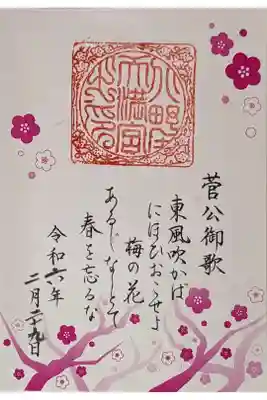 菅公御歌
東風吹かば
にほひおこせよ
梅の花
あるじなしとて
春を忘るな
令和六年
二月二十九日